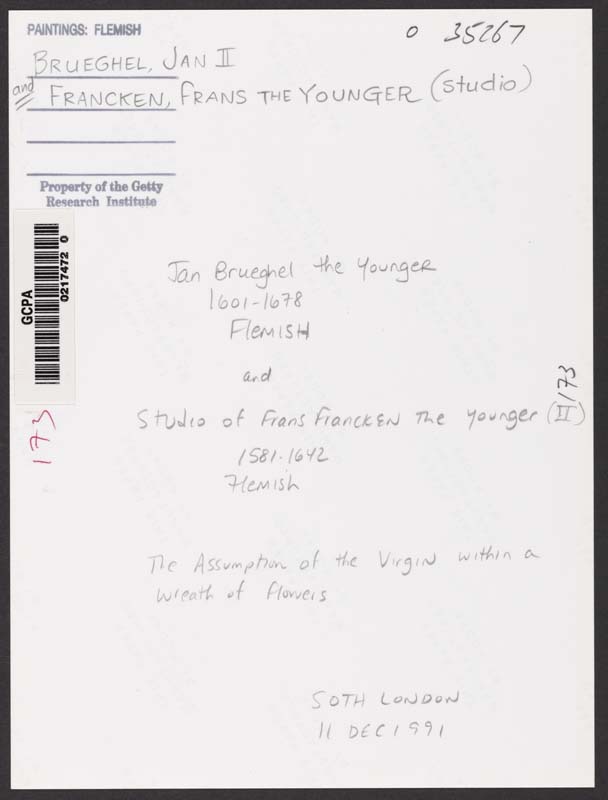 PAINTINGS: FLEMISH
0 35267
BRUEGHEL, JAN II
and FRANCKEN, FRANS THE YOUNGER (studio)
Property of the Getty
Research Institute
GCPA
0217472 0
173
Jan Brueghel the Younger
1601-1678
Flemish
and
Studio of Frans Francken the Younger (II)
173
1581-1642
Flemish
The Assumption of the Virgin within a
wreath of flowers
SOTH LONDON
11 DEC 1991